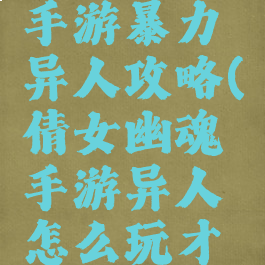 手游暴力
异人攻略(
倩女幽魂
手游异人
怎么玩才